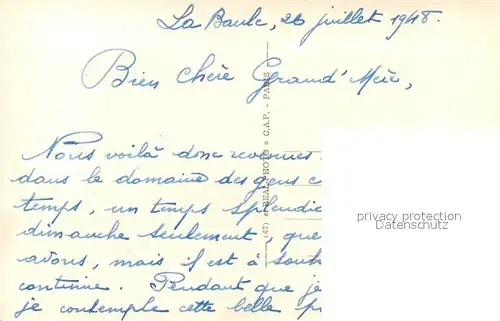 La Baule, 26 juillet 1948.
Bien chère Grand'Mère,
Nous voilà donc revenues
dans le domaine des gens c
temps, un temps splendi
dimanche seulement, que
avons, mais il est à souh
continue. Pendant que je
je contemple cette belle p
(47) REAL-PHOTO C.A.P. - PARIS
privacy protection
Datenschutz